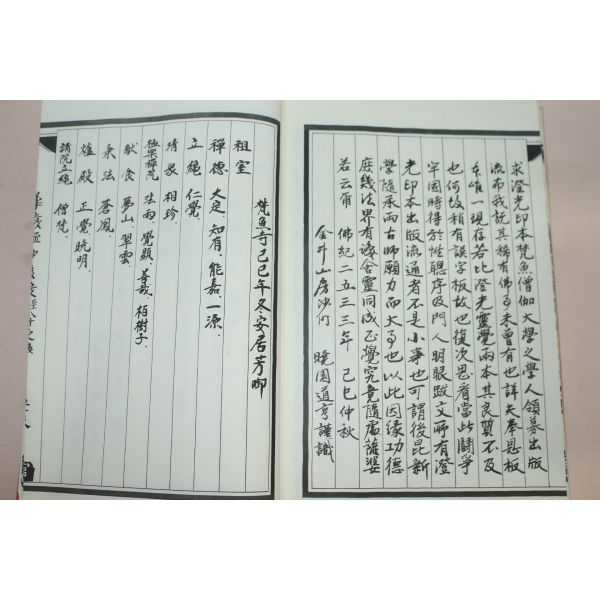 求澄光印本梵魚僧伽大學之學人領募出版
流布我說其稀有佛事未曾有也詳夫奉恩板
本唯一現存若比澄光靈覺兩本其良質不及
也何故稍有誤字板故也復次思看當此鬪爭
牢固時得於性聰序及門人明眼跋文所有澄
光印本出版流通者不是小事也可謂後昆新
學隨承兩古師願力而大事也以此因緣功德
庶幾法界有緣含靈同成正覺究竟隨處薩婆
若云甭 佛紀二五三三年 己巳仲秋
金井山房沙門 曉園道亨謹識
梵魚寺己巳年冬安居芳啣
祖室
禪德 大定、知有、能嘉、一源、
立繩 仁覺、
靖衆 相珍、
極樂禪院 法雨、覺顯、善哉、栢樹子、
献食 夢山、翠雲、
秉法 蒼鳳、
爐殿 正覺、眺明、
請院立繩 僧梵、